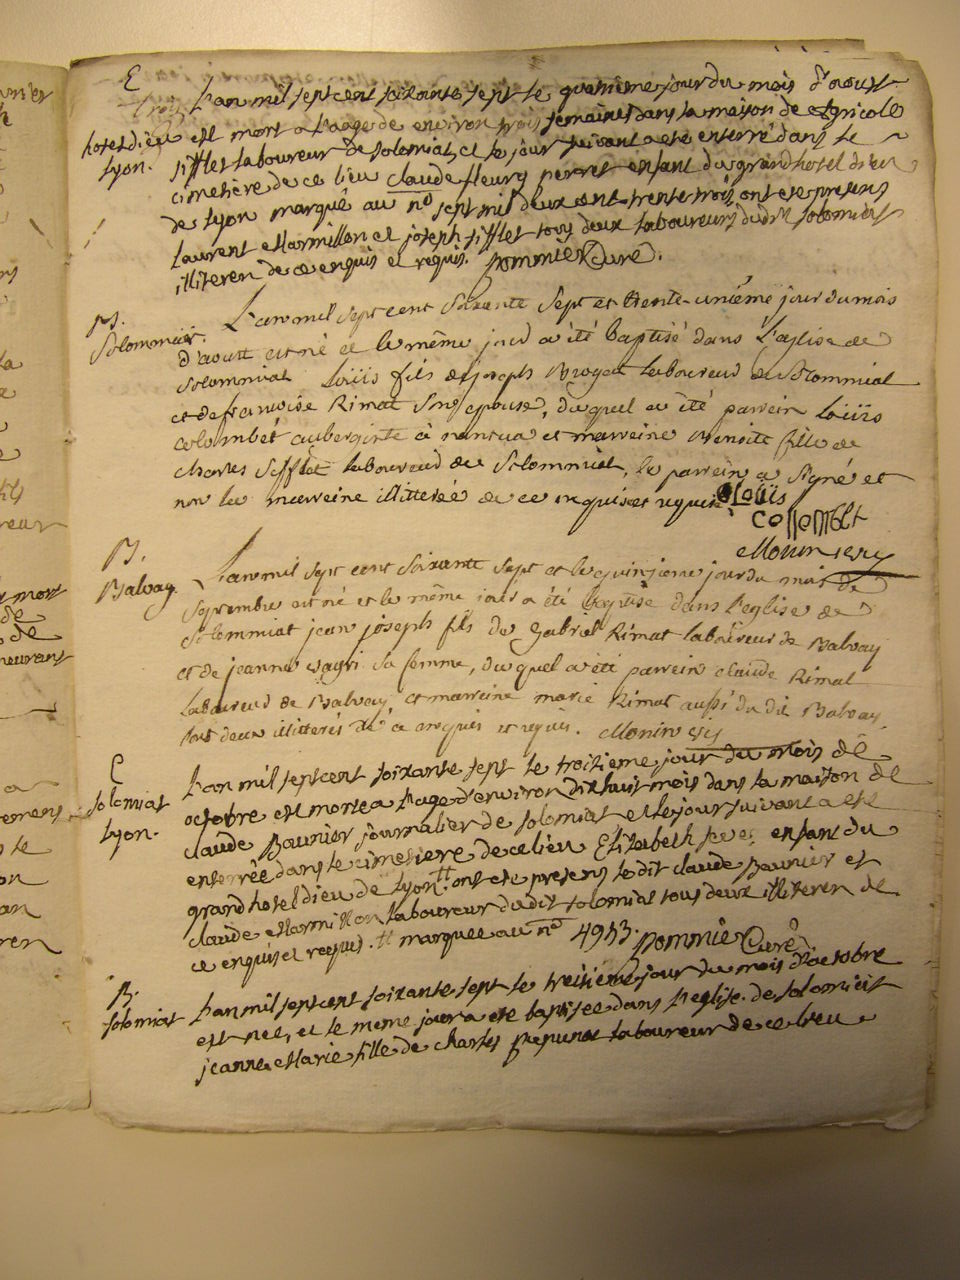 E
L'an mil sept cent soixante sept le quatrieme jour du mois d'aoust
hoteldieu est mort a l'aage de environ trois semaines dans la maison de Agricole
Lyon. sifflet laboureur de solomiat, et le jour suivant a eté enterré dans le
cimetiere de ce lieu claude fleury perret enfant du grand hotel dieu
de Lyon marqué au no sept mil deux cent trente trois, ont eté presens
Laurent Marmillon et joseph sifflet tous deux laboureurs dudit solomiat
illiteren de ce enquis et requis. pommier Curé.
B.
Solommiat. L'an mil sept cent Soixante Sept et trente-unième jour du mois
d'aoust est né et le même jour a été baptisé dans L'église de
Solommiat Loüis fils de joseph laboureur de Solommiat
et de francoise Rimat Son epouse, duquel a été parrein Loüis
colombet aubergiste à nantua et marreine fille de
charles Sifflet laboureur de Solommiat, le parrein a Signé et
non la marreine illitterée de ce enquise et requise. Loüis
collombet
Monin vicy
B.
Balvay. L'an mil sept cent Soixante Sept et le quinzieme jour du mois de
Septembre est né et le même jour a été baptisé dans l'eglise de
Solommiat jean joseph fils de gabriel Rimat laboureur de Balvay
et de jeanne sa femme, duquel a été parrein claude Rimat
Laboureur de Balvay, et marreine marie Rimat aussi du dit Balvay
tous deux illitterés de ce enquis et requis. Monin vicy
E
Solomiat L'an mil sept cent soixante sept le troisieme jour du mois de
Lyon. octobre est morte a l'age d'environ dix huit mois dans la maison de
claude Baunier journalier de solomiat et le jour suivant a eté
enterrée dans le cimetiere de ce lieu Elizabeth enfant du
grand hotel dieu de Lyon ont eté presens le dit claude Baunier et
claude Marmillon laboureur dudit solomiat tous deux illiteren de
ce enquis et requis. marquee au no 4953. pommier Curé
B.
solomiat L'an mil sept cent soixante sept le treisieme jour du mois d'octobre
est neé, et le meme jour a eté baptisée dans l'eglise de solomiat
jeanne Marie fille de charles laboureur de ce lieu